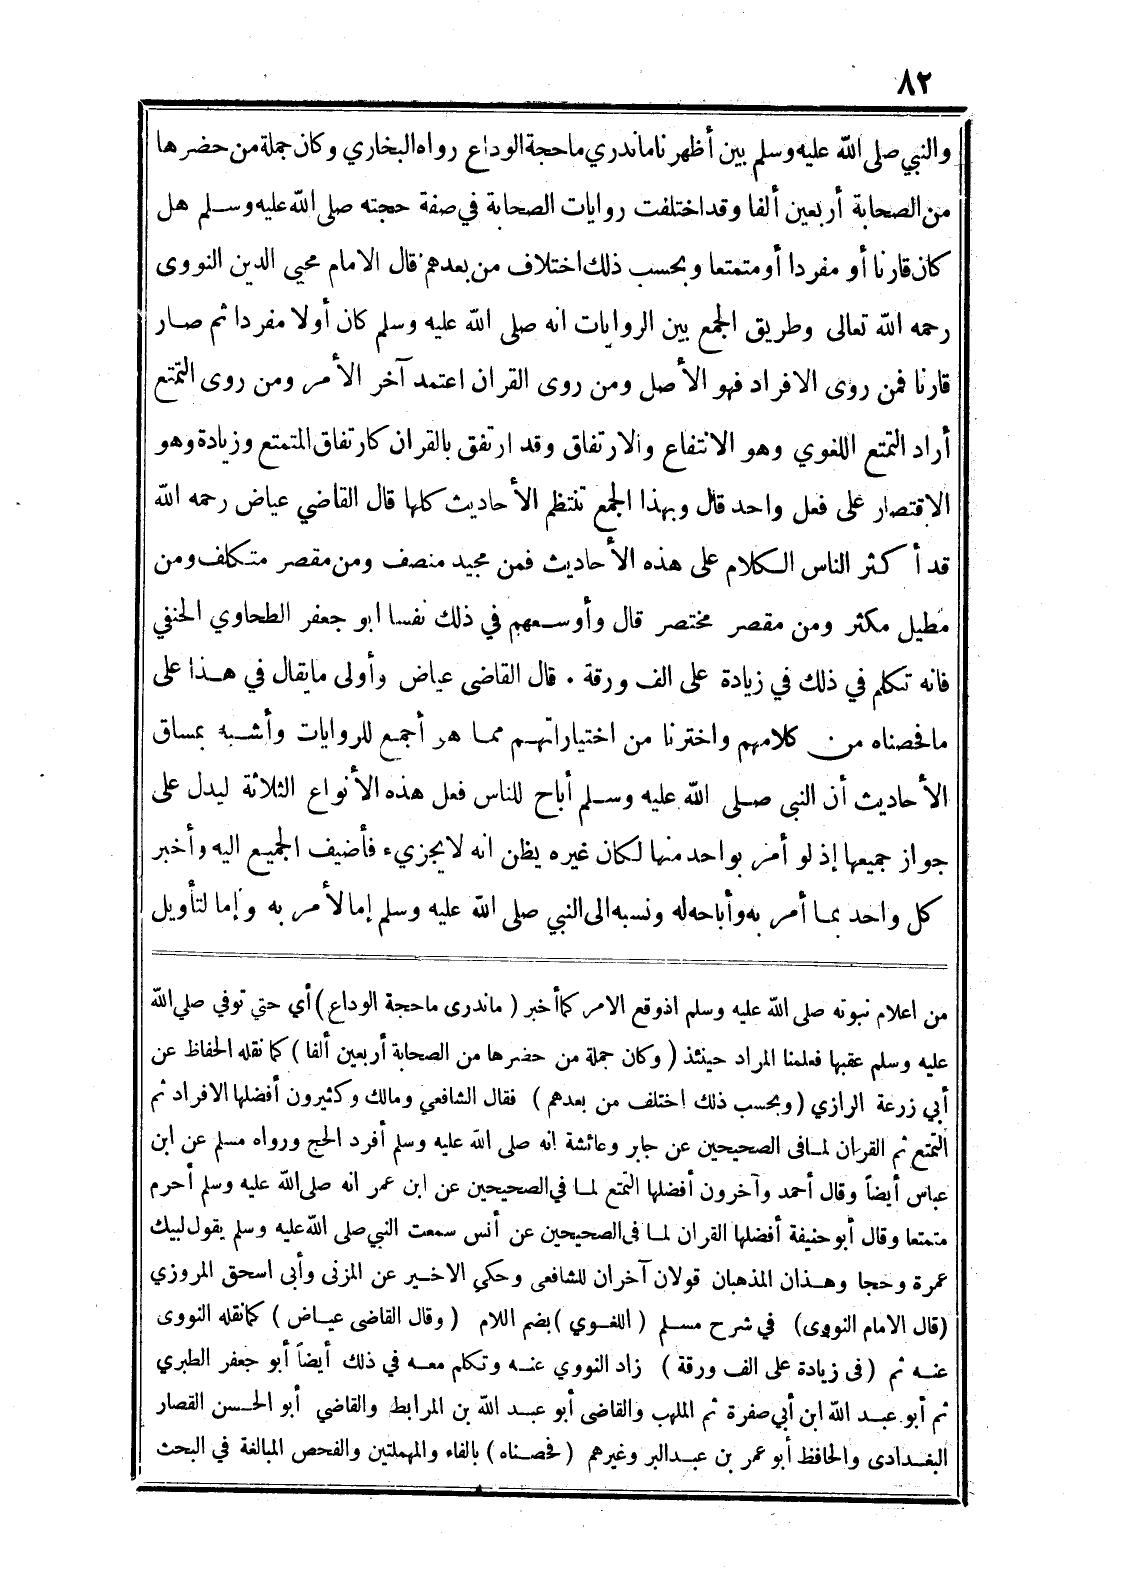 ٨٢
والنبي صلى الله عليه وسلم بين أظهرنا ماندري ما حجة الوداع رواه البخاري وكان جملة من حضرها
من الصحابة أربعين ألفا وقد اختلفت روايات الصحابة في صفة حجته صلى الله عليه وسلم هل
كان قارنا أو مفردا أو متمتعا وبحسب ذلك اختلاف من بعدهم قال الامام محيي الدين النووى
رحمه الله تعالى وطريق الجمع بين الروايات انه صلى الله عليه وسلم كان أولا مفردا ثم صار
قارنا فمن روى الافراد فهو الأصل ومن روى القران اعتمد آخر الأمر ومن روى التمتع
أراد التمتع اللغوي وهو الانتفاع والارتفاق وقد ارتفق بالقران كارتفاق المتمتع وزيادة وهو
الاقتصار على فعل واحد قال وبهذا الجمع تنتظم الأحاديث كلها قال القاضي عياض رحمه الله
قد أكثر الناس الكلام على هذه الأحاديث فمن مجيد منصف ومن مقصر متكلف ومن
مطيل مكثر ومن مقصر مختصر قال وأوسعهم في ذلك نفسا ابو جعفر الطحاوي الحنفي
فانه تكلم في ذلك في زيادة على الف ورقة . قال القاضى عياض وأولى مايقال في هذا على
مافحصناه من كلامهم واخترنا من اختياراتهم مما هو أجمع للروايات وأشبه بمساق
الأحاديث أن النبى صلى الله عليه وسلم أباح للناس فعل هذه الأنواع الثلاثة ليدل على
جواز جميعها إذ لو أمر بواحد منها لكان غيره يظن انه لا يجزيء فأضيف الجميع اليه وأخبر
كل واحد بما أمر به وأباحه له ونسبه الى النبي صلى الله عليه وسلم إما لأمر به وإما لتأويل
من اعلام نبوته صلى الله عليه وسلم اذوقع الامر كما أخبر ( ماندرى ماحجة الوداع ) أي حتى توفي صلى الله
عليه وسلم عقبها فعلمنا المراد حينئذ ( وكان جملة من حضرها من الصحابة أربعين ألفا ) كما نقله الحفاظ عن
أبي زرعة الرازي ( وبحسب ذلك اختلف من بعدهم ) فقال الشافعي ومالك وكثيرون أفضلها الافراد ثم
التمتع ثم القران لمافى الصحيحين عن جابر وعائشة انه صلى الله عليه وسلم أفرد الحج ورواه مسلم عن ابن
عباس أيضاً وقال أحمد وآخرون أفضلها التمتع لما في الصحيحين عن ابن عمر انه صلى الله عليه وسلم أحرم
متمتعا وقال أبو حنيفة أفضلها القران لما فى الصحيحين عن أنس سمعت النبي صلى الله عليه وسلم يقول لبيك
عمرة وحجا وهذان المذهبان قولان آخران للشافعى وحكي الاخير عن المزنى وأبى اسحق المروزي
(قال الامام النووى) في شرح مسلم ( اللغوي ) بضم اللام ( وقال القاضى عياض ) كما نقله النووى
عنه ثم ( فى زيادة على الف ورقة ) زاد النووي عنه وتكلم معه في ذلك أيضاً أبو جعفر الطبري
ثم أبو عبد الله ابن أبي صفرة ثم الملهب والقاضى أبو عبد الله بن المرابط والقاضي أبو الحسن القصار
البغدادى والحافظ أبو عمر بن عبدالبر وغيرهم ( فحصناه ) بالفاء والمهملتين والفحص المبالغة في البحث